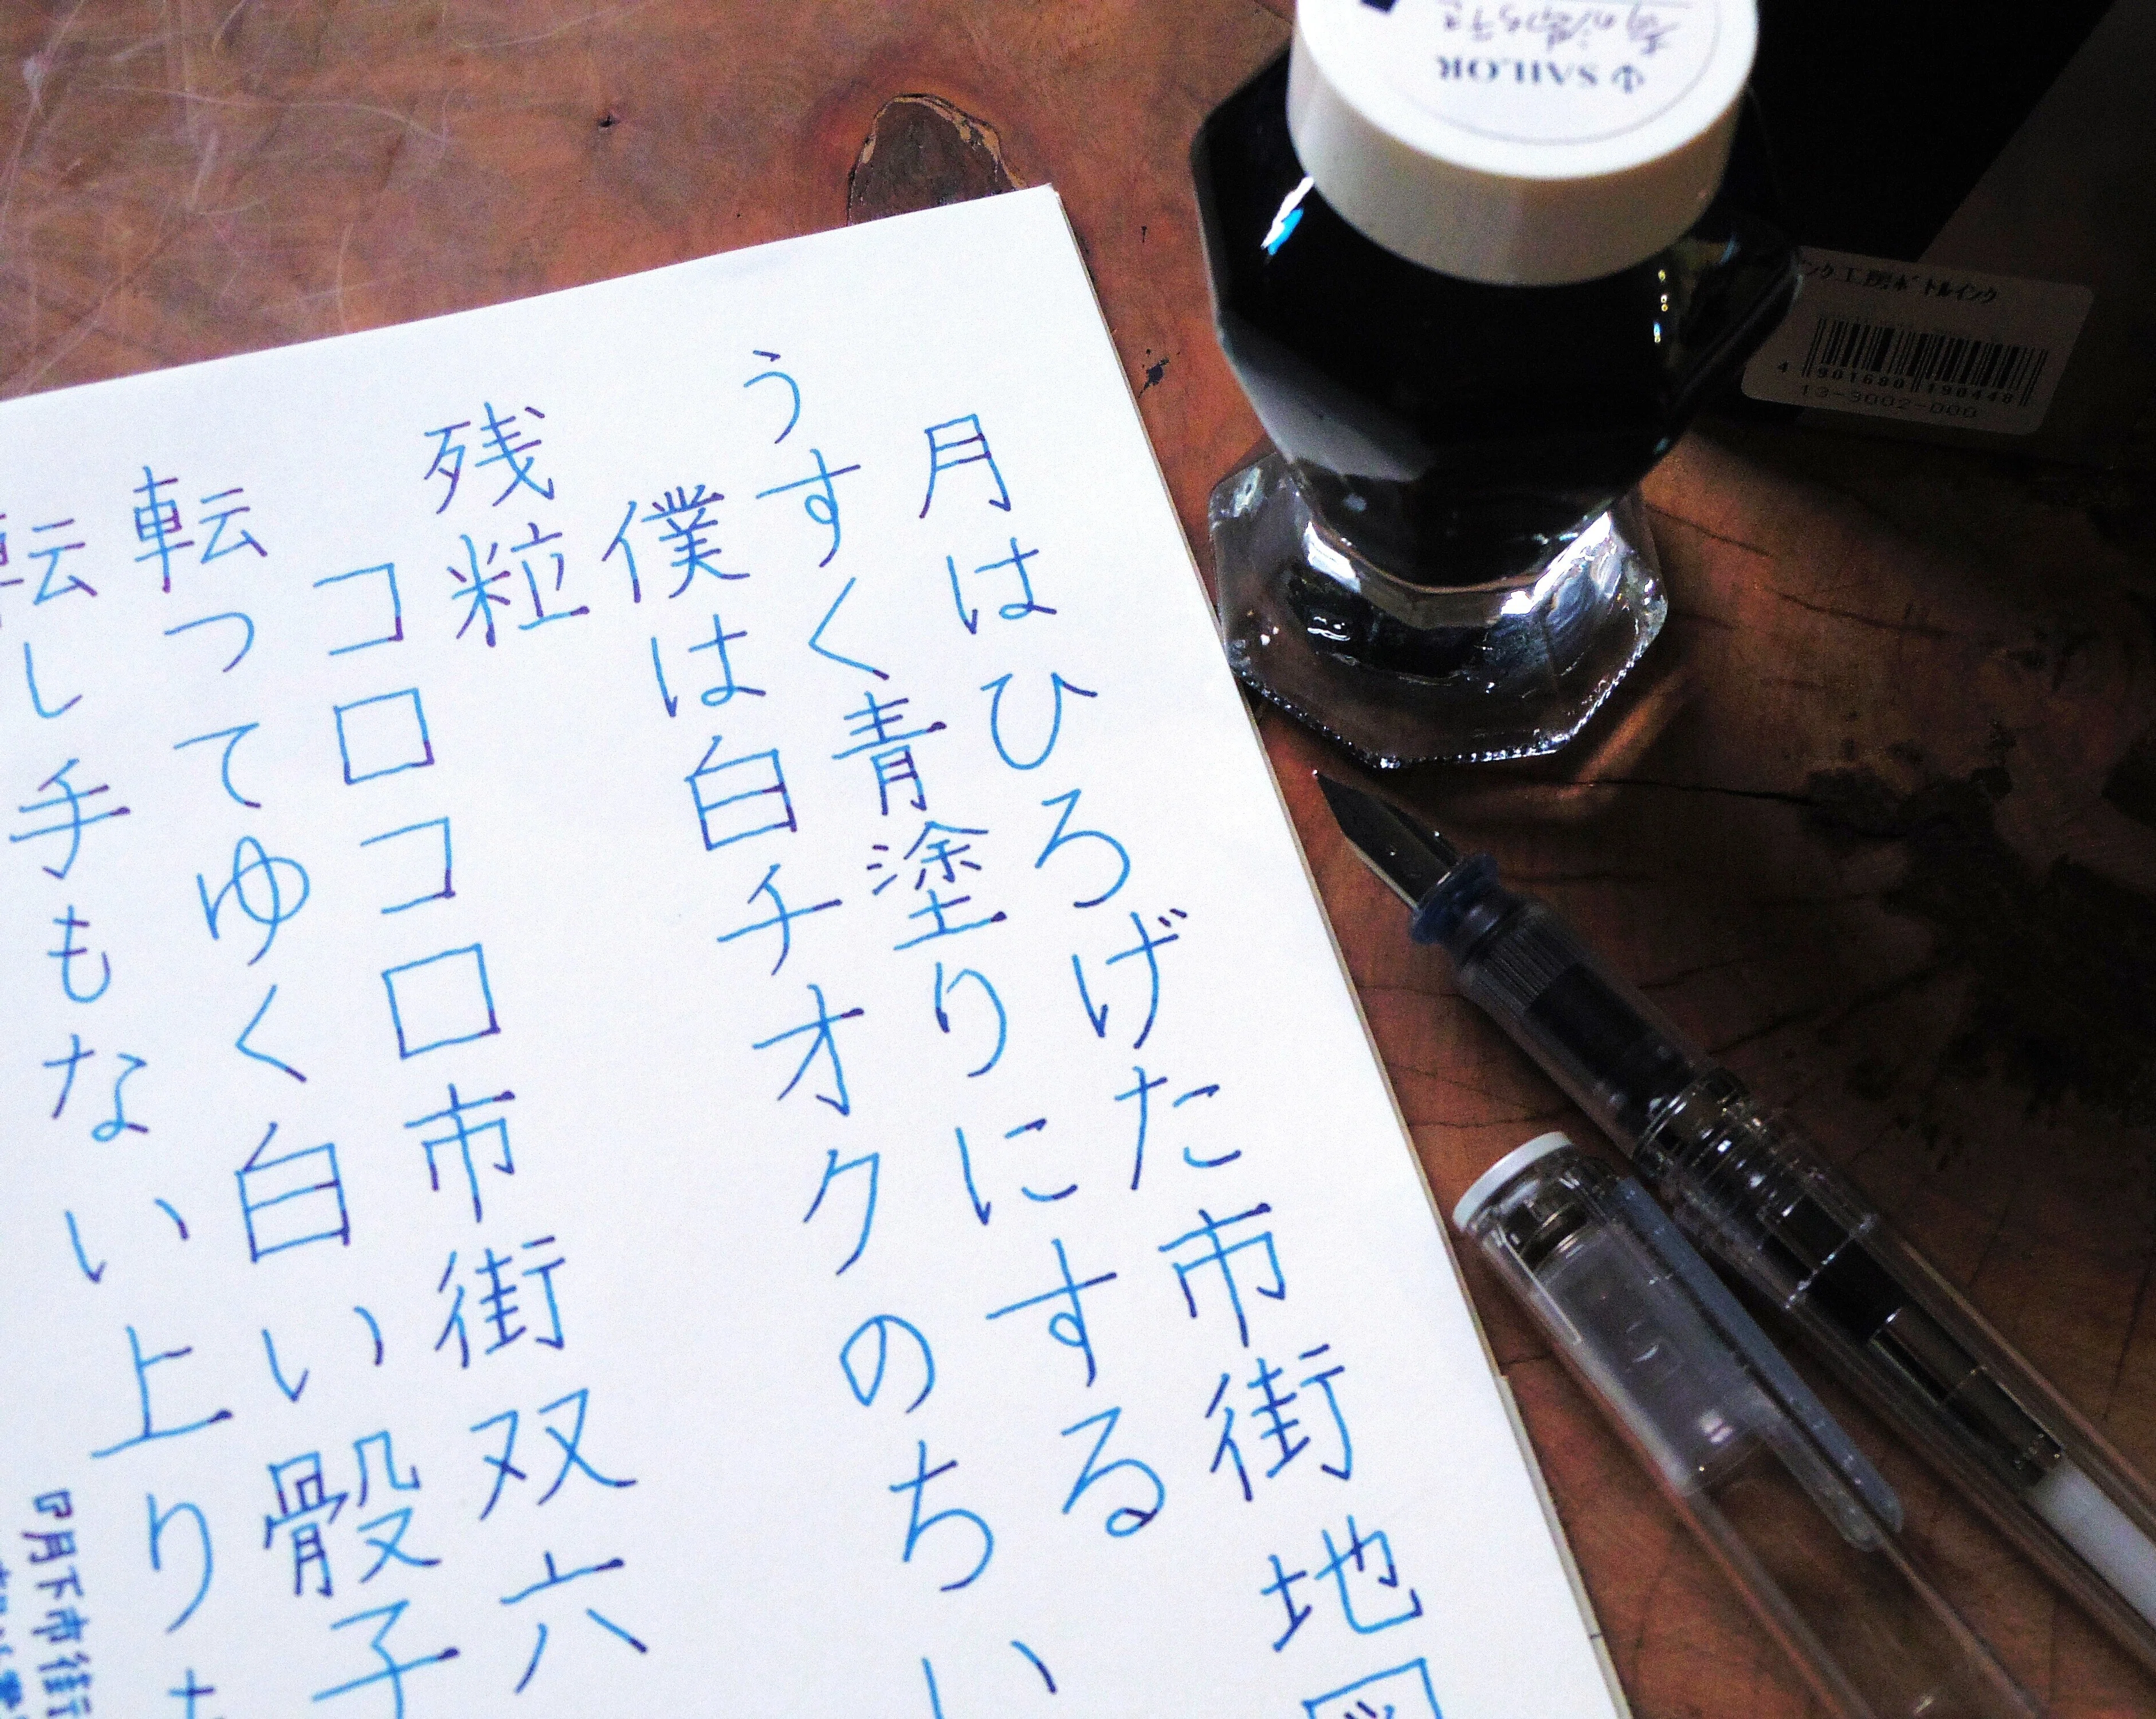 月はひろげた市街地図
うすく青塗りにする
僕は白チオクのちい
残粒
コロコロ市街双六
転ってゆく白い骰子
転し手もない上り
『月下市街
SAILOR
ンク工房ボトルインク
4 901680 190448
13-3002-000